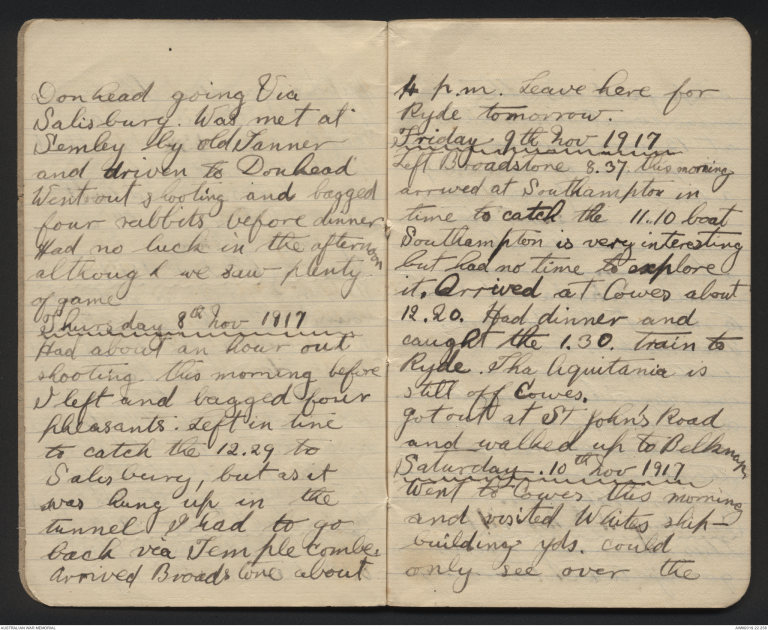 Donhead going Via
Salisbury. Was met at
Semley by old Tanner
and driven to Donhead
Went out shooting and bagged
four rabbits before dinner
Had no luck in the afternoon
although we saw plenty
of game
Thursday 8th Nov 1917
Had about an hour out
shooting this morning before
I left and bagged four
pheasants. Left in time
to catch the 12.29 to
Salisbury, but as it
was hung up in the
tunnel I had to go
back via Templecombe.
Arrived Broadstone about
4 p.m. Leave here for
Ryde tomorrow.
Friday 9th Nov 1917
Left Broadstone 8.37 this morning
arrived at Southampton in
time to catch the 11.10 boat
Southampton is very interesting
but had no time to explore
it. Arrived at Cowes about
12.20. Had dinner and
caught the 1.30. train to
Ryde. Tha Aquitania is
still off Cowes.
got out at St John's Road
and walked up to Belknap,
Saturday. 10th Nov 1917
Went to Cowes this morning
and visited Whites ship-
building yds. could
only see over the
AUSTRALIAN WAR MEMORIAL